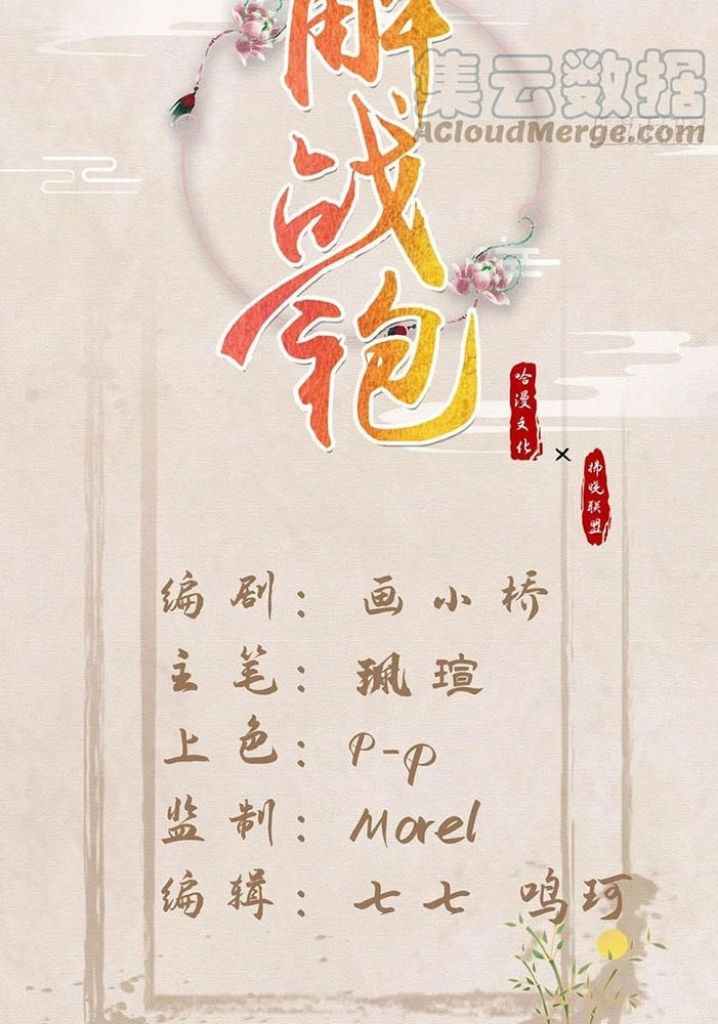 解
战
袍
集云数据
ACloudMerge.com
哈漫文化
×
拂晓联盟
编剧：画小桥
主笔：珮瑄
上色：P-p
监制：Morel
编辑：七七 鸣珂